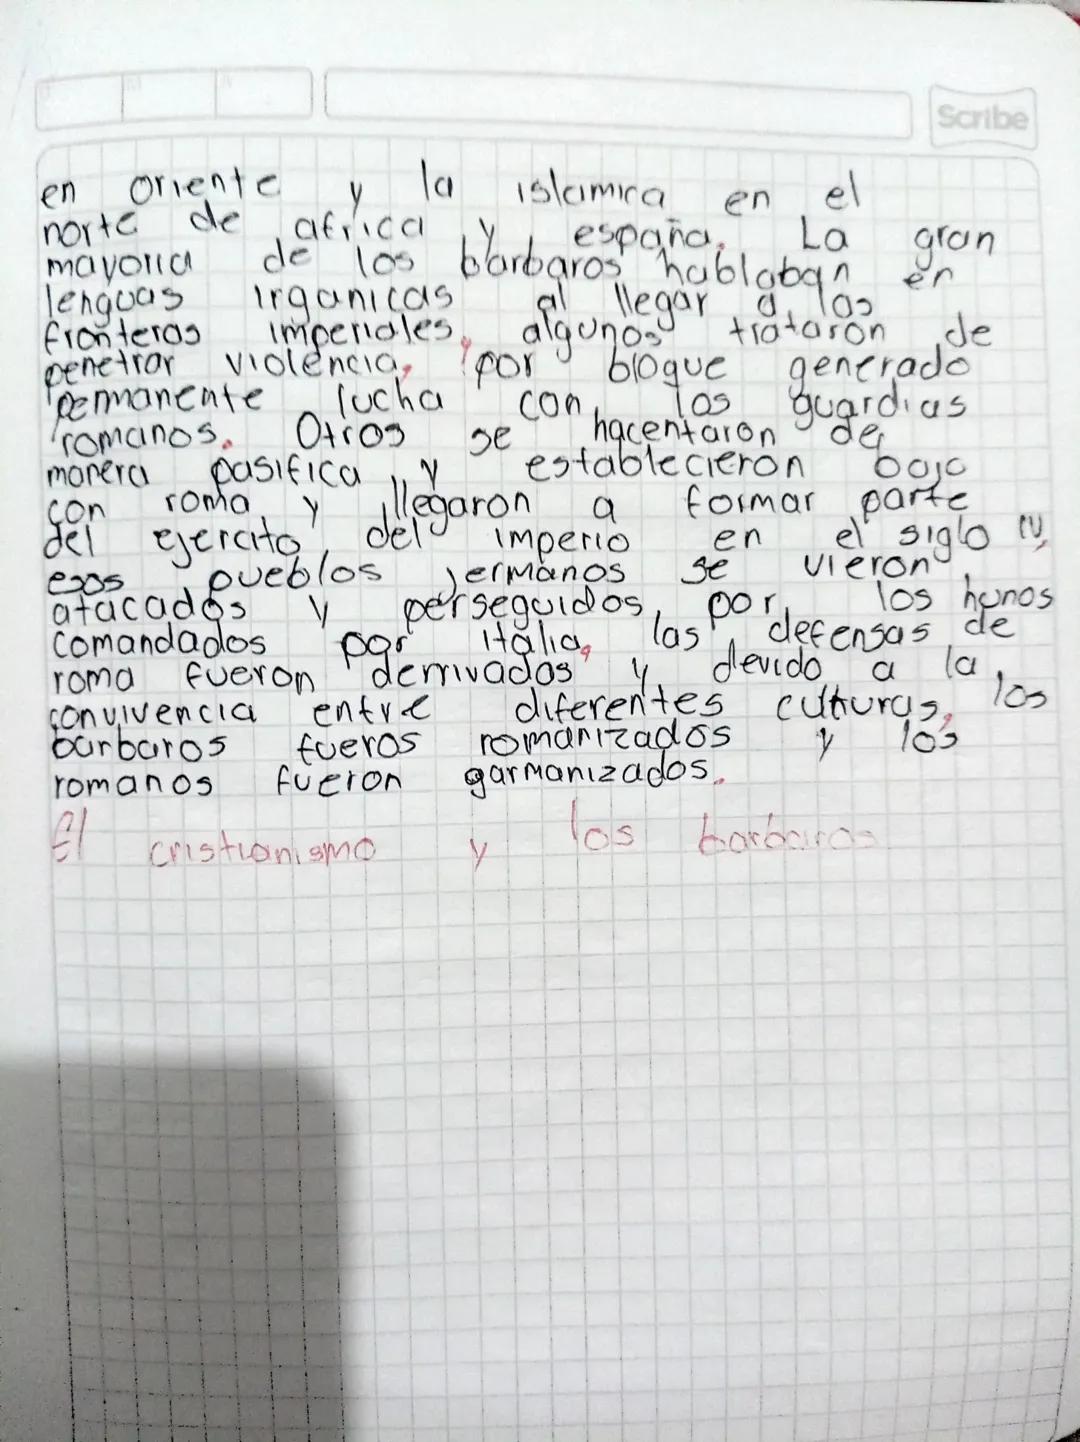 Scribe
en oriente y la islamica en el
norte de africa y españa. La gran
mayoria de los barbaros hablaban en
lenguas irganicas al llegar a las
fronteras imperiales, algunos trataron de
penetrar violencia, por bloque generado
permanente lucha con los guardias
romanos. Otros se hacentaron de
manera pasifica y establecieron bajo
con roma y llegaron a formar parte
del ejercito del imperio en el siglo IV,
esos pueblos jermanos se vieron
atacados y perseguidos por los hunos
comandados por italia, las defensas de
roma fueron derrivadas y devido a la
convivencia entre diferentes culturas, los
barbaros fueros romanizados y los
romanos fueron garmanizados.
El cristianismo y los barbaros